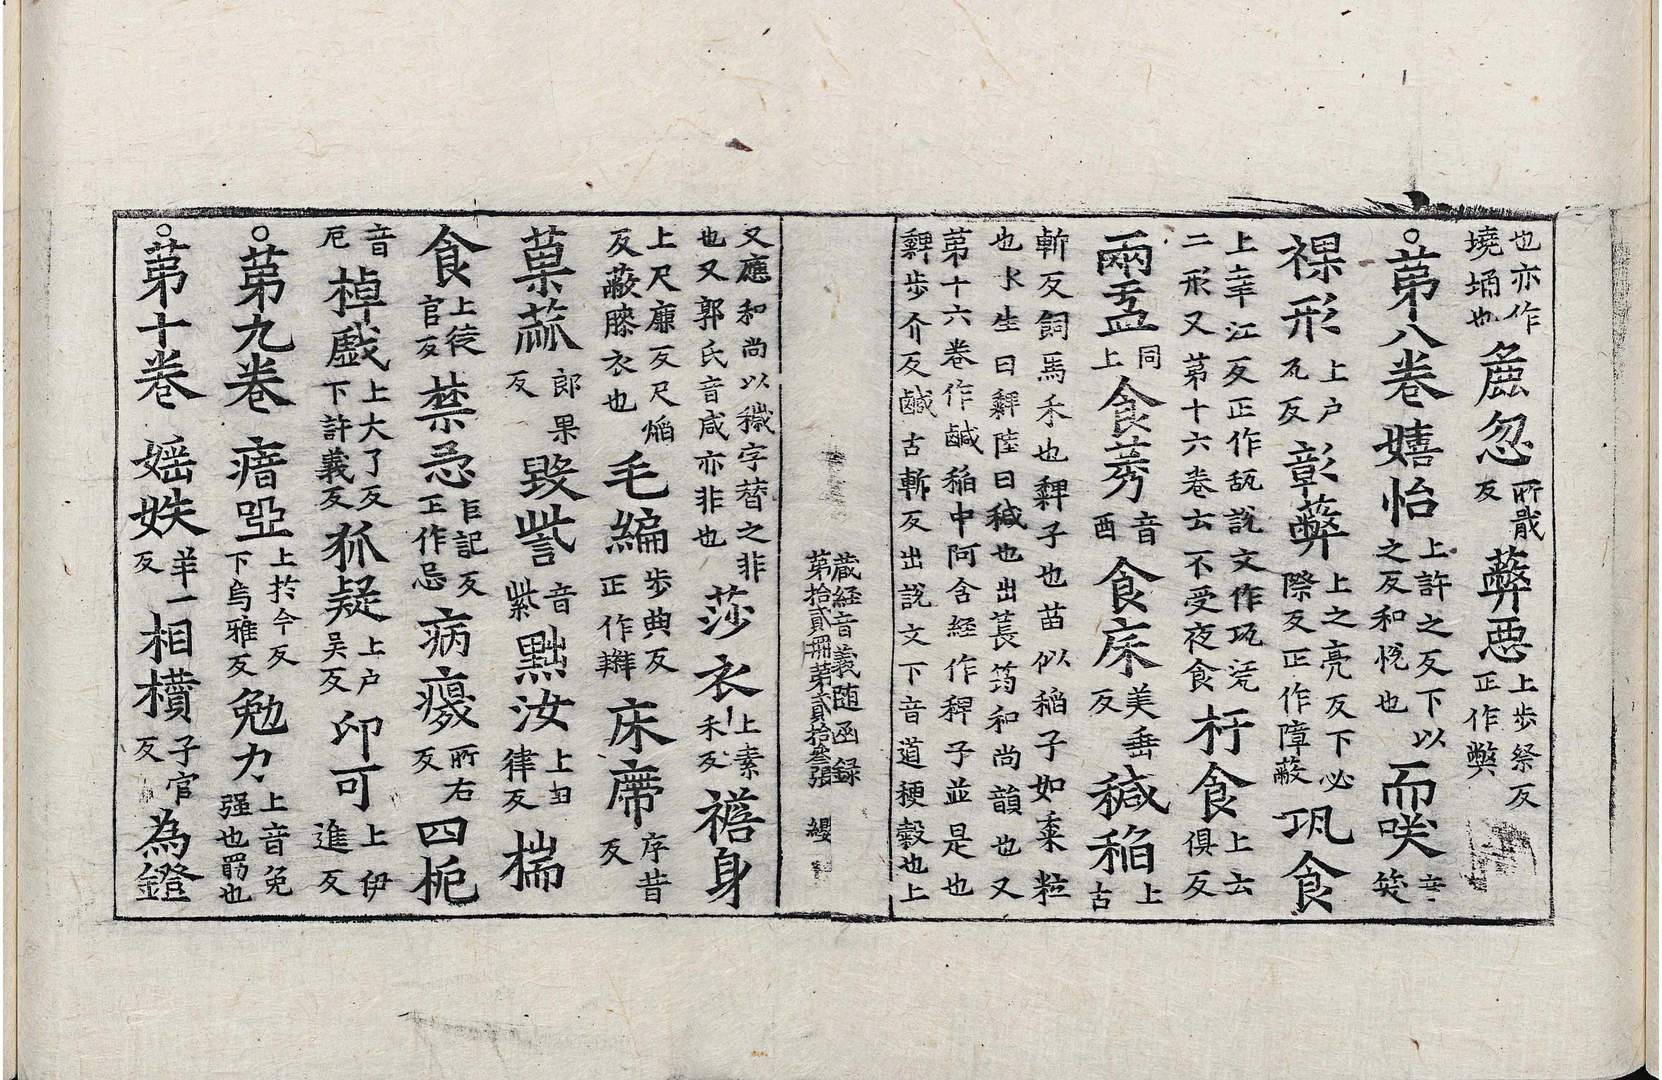 也亦作墝埇也麁忽所戢反弊惡上步祭反正作獘
○苐八卷嬉怡上許之反下以之反和悅也而咲音笑
祼形上户瓦反彰弊上之亮反下必際反正作障蔽巩食
上幸江反正作瓨說文作瓨瓷二形又苐十六卷云不受夜食杅食上云俱反
兩盂同上食莠音酉食床美垂反稴稲上古
斬反飼馬禾也稗子也苗似稲子如黍粒
也水生曰稗陸曰稴也出萇筠和尚韻也又
苐十六卷作鹹稲中阿含経作稗子並是也
稗步介反鹹古斬反出說文下音道稉糓也上
蔵経音義随函録苐拾貳冊苐貳拾叄張 纓
又應和尚以穢字替之非也又郭氏音咸亦非也莎衣上素禾反襜身
上尺廉反尺焰反蔽膝衣也毛編步典反正作辮床席序昔反
菓蓏郎果反毀訾音紫黜汝上丑律反椯
食上徒官反禁忌巨記反正作忌病瘦所右反四枙
音厄棹戲上大了反下許義反狐疑上户吴反印可上伊進反
○苐九卷瘖啞上扵今反下烏雅反勉力上音免强也勗也
○苐十卷婬妷羊一反相㩫子官反為鐙